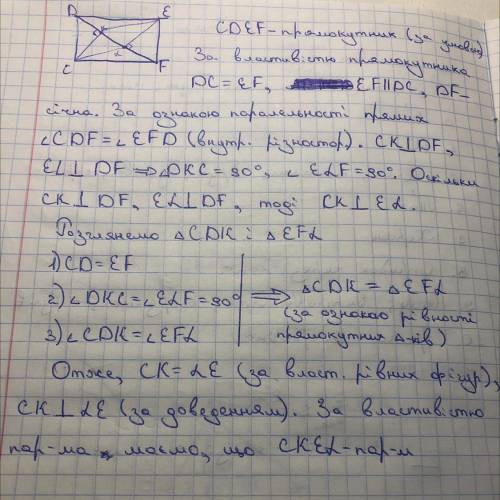 D E
C F
K L
CDEF-прямокутник (за умовою)
За властивістю прямокутника
DC=EF, EF||DC, DF-
січна. За ознакою паралельності прямих
∠CDF=∠EFD (внутр. різностор). CK⊥DF,
EL⊥DF ⇒ ∠DKC=90°, ∠ELF=90°. Оскільки
CK⊥DF, EL⊥DF, тоді CK⊥EL.
Розглянемо ΔCDK і ΔEFL
1) CD=EF
2) ∠DKC=∠ELF=90° ⇒ ΔCDK=ΔEFL
(за ознакою рівності
3) ∠CDK=∠EFL прямокутних Δ-ків)
Отже, CK=LE (за власт. рівних фігур),
CK⊥LE (за доведенням). За властивістю
пар-ма маємо, що CKEL-пар-м